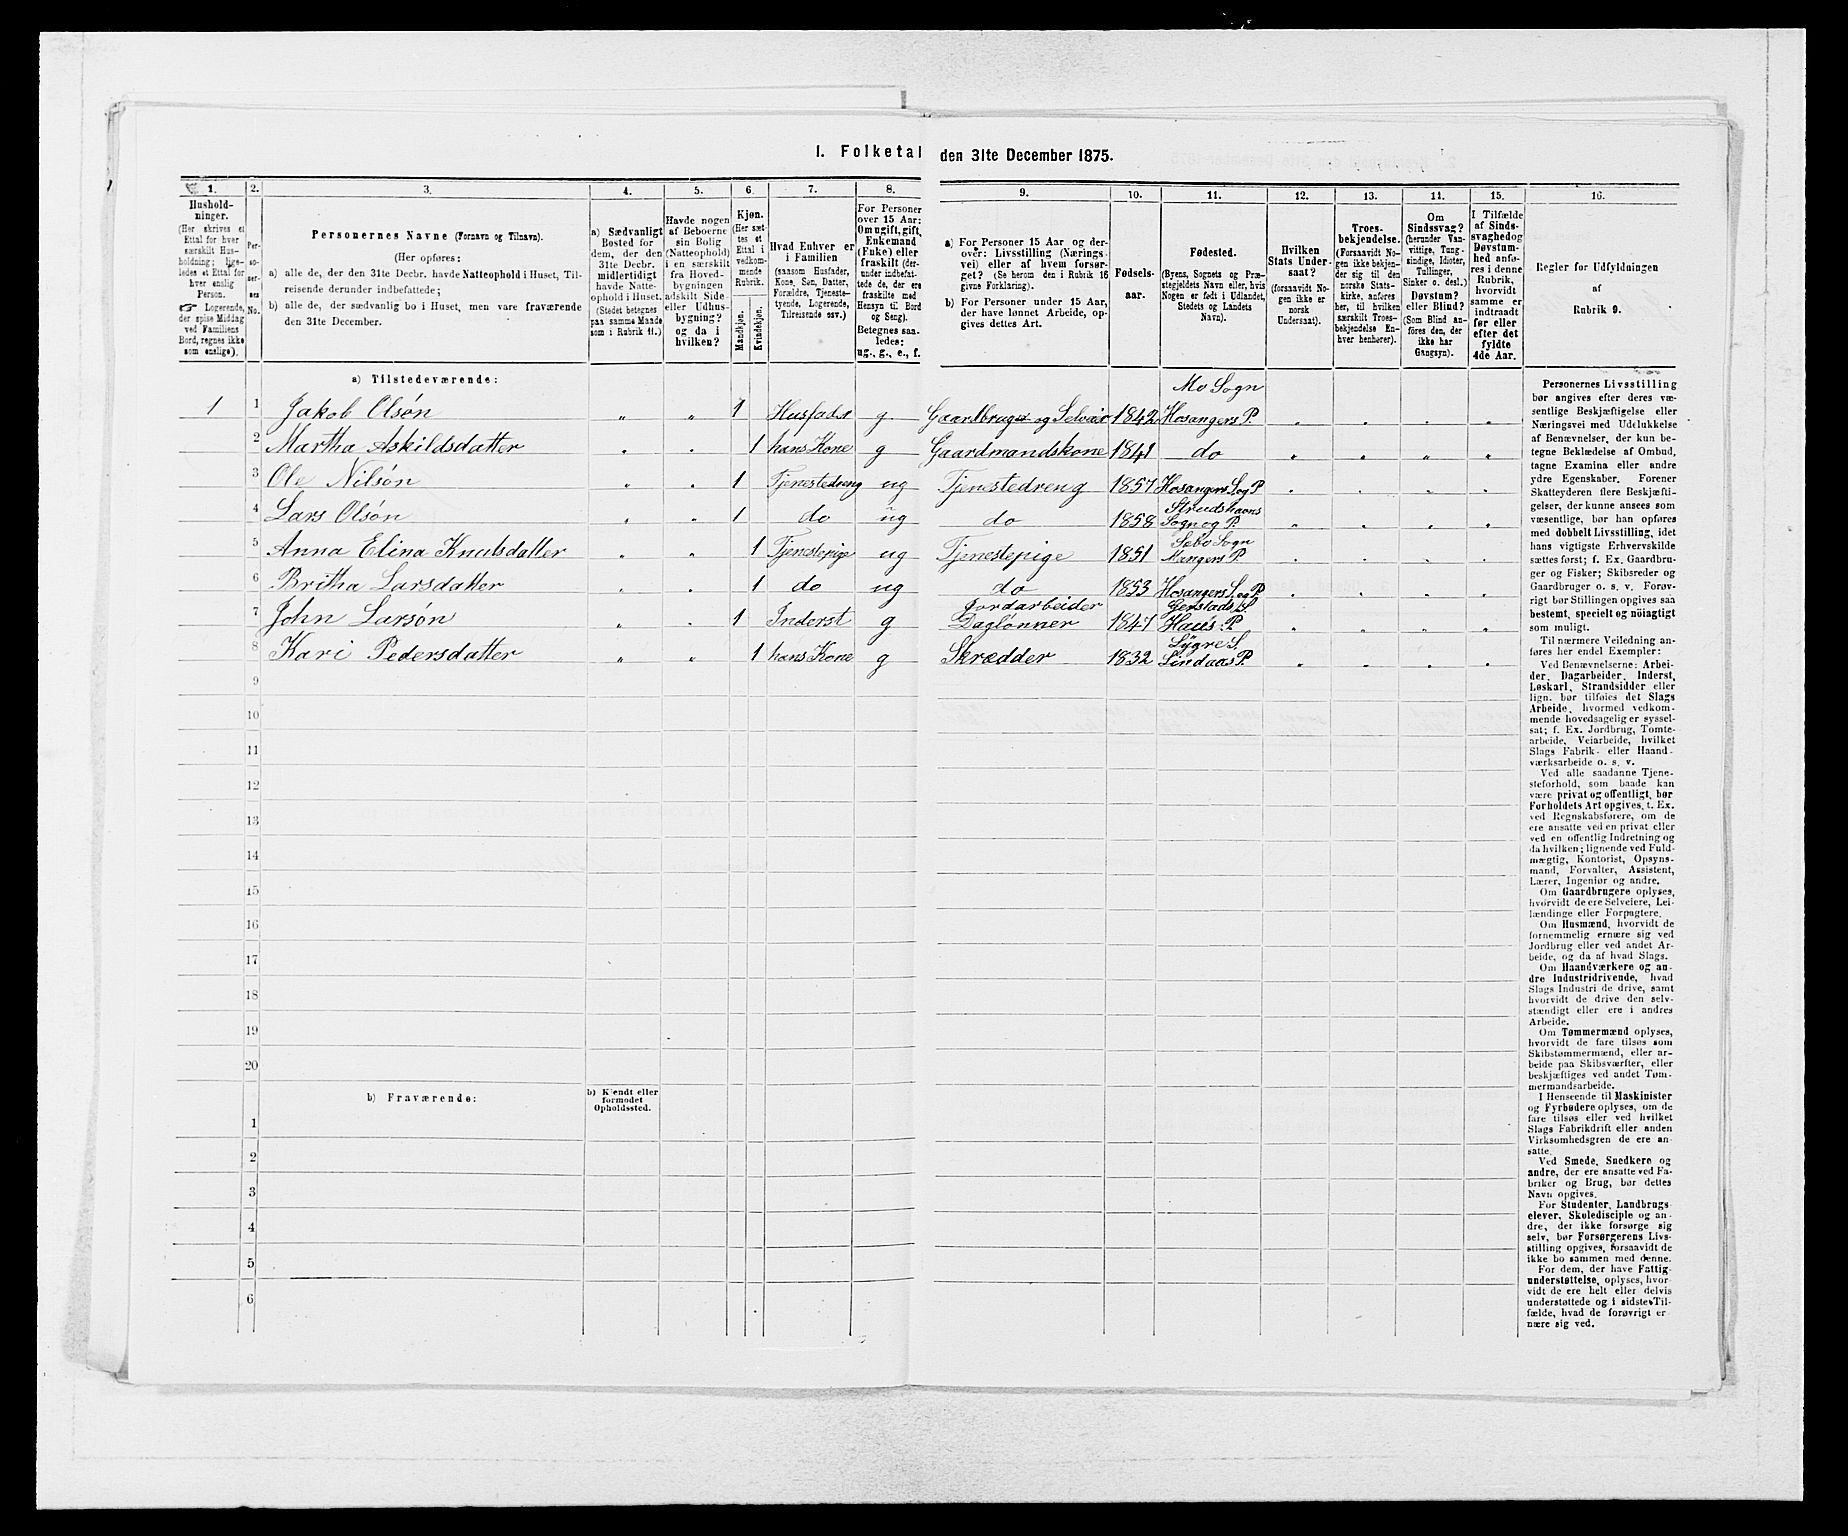 I. Folketal den 31te December 1875.
1. 2. 3. 4. 5. 6. 7. 8. 9. 10. 11. 12. 13. 14. 15. 16.
Hushold-
ninger.
(Her skrives et
Ettal for hver
særskilt Hus-
holdning; lige-
ledes et Ettal for
hver enslig
Person.
☞ Logerende,
der spise Middag
ved Familiens
Bord, regnes ikke
som enslige).
Per-
so-
ner-
nes
No.
Personernes Navne (Fornavn og Tilnavn).
(Her opføres:
a) alle de, der den 31te Decbr. havde Natteophold i Huset, Til-
reisende derunder indbefattede;
b) alle de, der sædvanlig bo i Huset, men vare fraværende
den 31te December.
a) Sædvanligt
Bosted for
dem, der den
31te Decbr.
midlertidigt
havde Natte-
ophold i Huset.
(Stedet betegnes
paa samme Maade
som i Rubrik 11.)
Havde nogen
af Beboerne
sin Bolig
(Natteophold)
i en særskilt
fra Hoved-
bygningen
adskilt Side-
eller Udhus-
bygning?
og da i
hvilken?
Kjøn.
(Her sæt-
tes et
Ettal i
vedkom-
mende
Rubrik.
Mandkjøn.
Kvindekjøn.
Hvad Enhver er
i Familien
(saasom Husfader,
Kone, Søn, Datter,
Forældre, Tjeneste-
tyende, Logerende,
Tilreisende osv.)
For Personer
over 15 Aar:
Om ugift, gift,
Enkemand
(Enke) eller
fraskilt (der-
under indbefat-
tede de, der ere
fraskilte med
Hensyn til Bord
og Seng).
Betegnes saa-
ledes:
ug., g., e., f.
a) For Personer 15 Aar og der-
over: Livsstilling (Nærings-
vei) eller af hvem forsør-
get? (Se herom den i Rubrik 16
givne Forklaring).
b) For Personer under 15 Aar,
der have lønnet Arbeide, op-
gives dettes Art.
Fødsels-
aar.
Fødested.
(Byens, Sognets og Præ-
stegjeldets Navn eller, hvis
Nogen er født i Udlandet,
Stedets og Landets
Navn).
Hvilken
Stats Under-
saat?
(forsaavidt No-
gen ikke er
norsk
Undersaat).
Troes-
bekjendelse.
(Forsaavidt No-
gen ikke bekjen-
der sig til den
norske Stats-
kirke, anføres
her, til hvilken
særskilt Troes-
bekjendelse En-
hver henhører).
Om
Sindssvag?
(herunder Van-
vittige, Tung-
sindige, Idioter,
Tullinger,
Sinker o. desl.)
Døvstum?
eller Blind?
(Som Blind an-
føres den, der
ikke har
Gangsyn).
I Tilfælde
af Sinds-
svaghed og
Døvstum-
hed anfø-
res i denne
Rubrik,
hvorvidt
samme er
indtraadt
før eller
efter det
fyldte
4de Aar.
Regler for Udfyldningen
af
Rubrik 9.
a) Tilstedeværende:
Mo Sogn
1 1 Jakob Olsön „ „ 1 Husfader g Gaardbruger og Selveier 1842 Hosangers P. „ „ „ „
2 Martha Askildsdatter „ „ 1 hans Kone g Gaardmandskone 1841 do „ „ „ „
3 Ole Nilsön „ „ 1 Tjenestedreng ug Tjenestedreng 1857 Hosangers S. og P „ „ „ „
4 Lars Olsön „ „ 1 do ug do 1858 Sogn og P. „ „ „ „
Sæbo Sogn
5 Anna Elina Knutsdatter „ „ 1 Tjenestepige ug Tjenestepige 1851 Mangers P. „ „ „ „
6 Britha Larsdatter „ „ 1 do ug do 1853 Hosangers S. og P „ „ „ „
Jordarbeider Gerstads S
7 John Larsön „ „ 1 Inderst g Daglönner 1847 Haus P. „ „ „ „
Lygre S.
8 Kari Pedersdatter „ „ 1 hans Kone g Skrædder 1832 Lindaas P. „ „ „ „
9
10
11
12
13
14
15
16
17
18
19
20
b) Fraværende:
b) Kjendt eller
formodet
Opholdssted.
1
2
3
4
5
6
Personernes Livsstilling
bør angives efter deres væ-
sentlige Beskjæftigelse eller
Næringsvei med Udelukkelse
af Benævnelser, der kun be-
tegne Beklædelse af Ombud,
tagne Examina eller andre
ydre Egenskaber. Forener
Skatteyderen flere Beskjæfti-
gelser, der kunne ansees som
væsentlige, bør han opføres
med dobbelt Livsstilling, idet
hans vigtigste Erhvervskilde
sættes først; f. Ex. Gaardbru-
ger og Fisker; Skibsreder og
Gaardbruger o. s. v. Forøv-
rigt bør Stillingen opgives saa
bestemt, specielt og nøiagtigt
som muligt.
Til nærmere Veiledning an-
føres her endel Exempler:
Ved Benævnelserne: Arbei-
der, Dagarbeider, Inderst,
Løskarl, Strandsidder eller
lign. bør tilføies det Slags
Arbeide, hvormed vedkom-
mende hovedsagelig er syssel-
sat; f. Ex. Jordbrug, Tomte-
arbeide, Veiarbeide, hvilket
Slags Fabrik- eller Haand-
værksarbeide o. s. v.
Ved alle saadanne Tjene-
steforhold, som baade kan
være privat og offentligt, bør
Forholdets Art opgives, t. Ex.
ved Regnskabsførere, om de
ere ansatte ved en privat eller
ved en offentlig Indretning og
da hvilken; lignende ved Fuld-
mægtig, Kontorist, Opsyns-
mand, Forvalter, Assistent,
Lærer, Ingeniør og andre.
Om Gaardbrugere oplyses,
hvorvidt de ere Selveiere, Lei-
lændinge eller Forpagtere.
Om Husmænd, hvorvidt de
fornemmelig ernære sig ved
Jordbrug eller ved andet Ar-
beide, og da af hvad Slags.
Om Haandværkere og an-
dre Industridrivende, hvad
Slags Industri de drive, samt
hvorvidt de drive den selv-
stændigt eller ere i andres
Arbeide.
Om Tømmermænd oplyses,
hvorvidt de fare tilsøs som
Skibstømmermænd, eller ar-
beide paa Skibsværfter, eller
beskjæftiges ved andet Tøm-
mermandsarbeide.
I Henseende til Maskinister
og Fyrbødere oplyses, om de
fare tilsøs eller ved hvilket
Slags Fabrikdrift eller anden
Virksomhedsgren de ere an-
satte.
Ved Smede, Snedkere og
andre, der ere ansatte ved Fa-
briker og Brug, bør dettes
Navn opgives.
For Studenter, Landbrugs-
elever, Skoledisciple og an-
dre, der ikke forsørge sig
selv, bør Forsørgerens Livs-
stilling opgives, forsaavidt de
ikke bo sammen med denne.
For dem, der have Fattig-
understøttelse, oplyses, hvor-
vidt de ere helt eller delvis
understøttede og i sidste Til-
fælde, hvad de forøvrigt er-
nære sig ved.